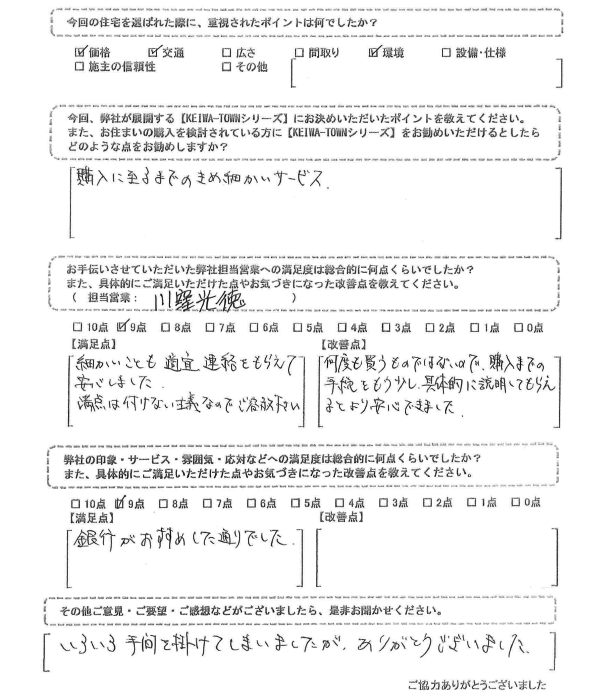 今回の住宅を選ばれた際に、重視されたポイントは何でしたか？
☑価格 ☑交通 □広さ □間取り ☑環境 □設備・仕様
□施主の信頼性 □その他
今回、弊社が展開する【KEIWA-TOWNシリーズ】にお決めいただいたポイントを教えてください。
また、お住まいの購入を検討されている方に【KEIWA-TOWNシリーズ】をお勧めいただけるとしたら
どのような点をお勧めしますか？
購入に至るまでのきめ細かいサービス.
お手伝いさせていただいた弊社担当営業への満足度は総合的に何点くらいでしたか？
また、具体的にご満足いただけた点やお気づきになった改善点を教えてください。
（ 担当営業： 川窪光徳 ）
□10点 ☑9点 □8点 □7点 □6点 □5点 □4点 □3点 □2点 □1点 □0点
【満足点】
細かいことも適宜連絡をもらえて
安心しました.
満点は付けない主義なのでご容赦下さい
【改善点】
何度も買うものではないので、購入までの
手続をもう少し具体的に説明してもらえ
るとより安心できました.
弊社の印象・サービス・雰囲気・応対などへの満足度は総合的に何点くらいでしたか？
また、具体的にご満足いただけた点やお気づきになった改善点を教えてください。
□10点 ☑9点 □8点 □7点 □6点 □5点 □4点 □3点 □2点 □1点 □0点
【満足点】
銀行がおすすめした通りでした.
【改善点】
その他ご意見・ご要望・ご感想などがございましたら、是非お聞かせください。
いろいろ手間を掛けてしまいましたが、ありがとうございました.
ご協力ありがとうございました